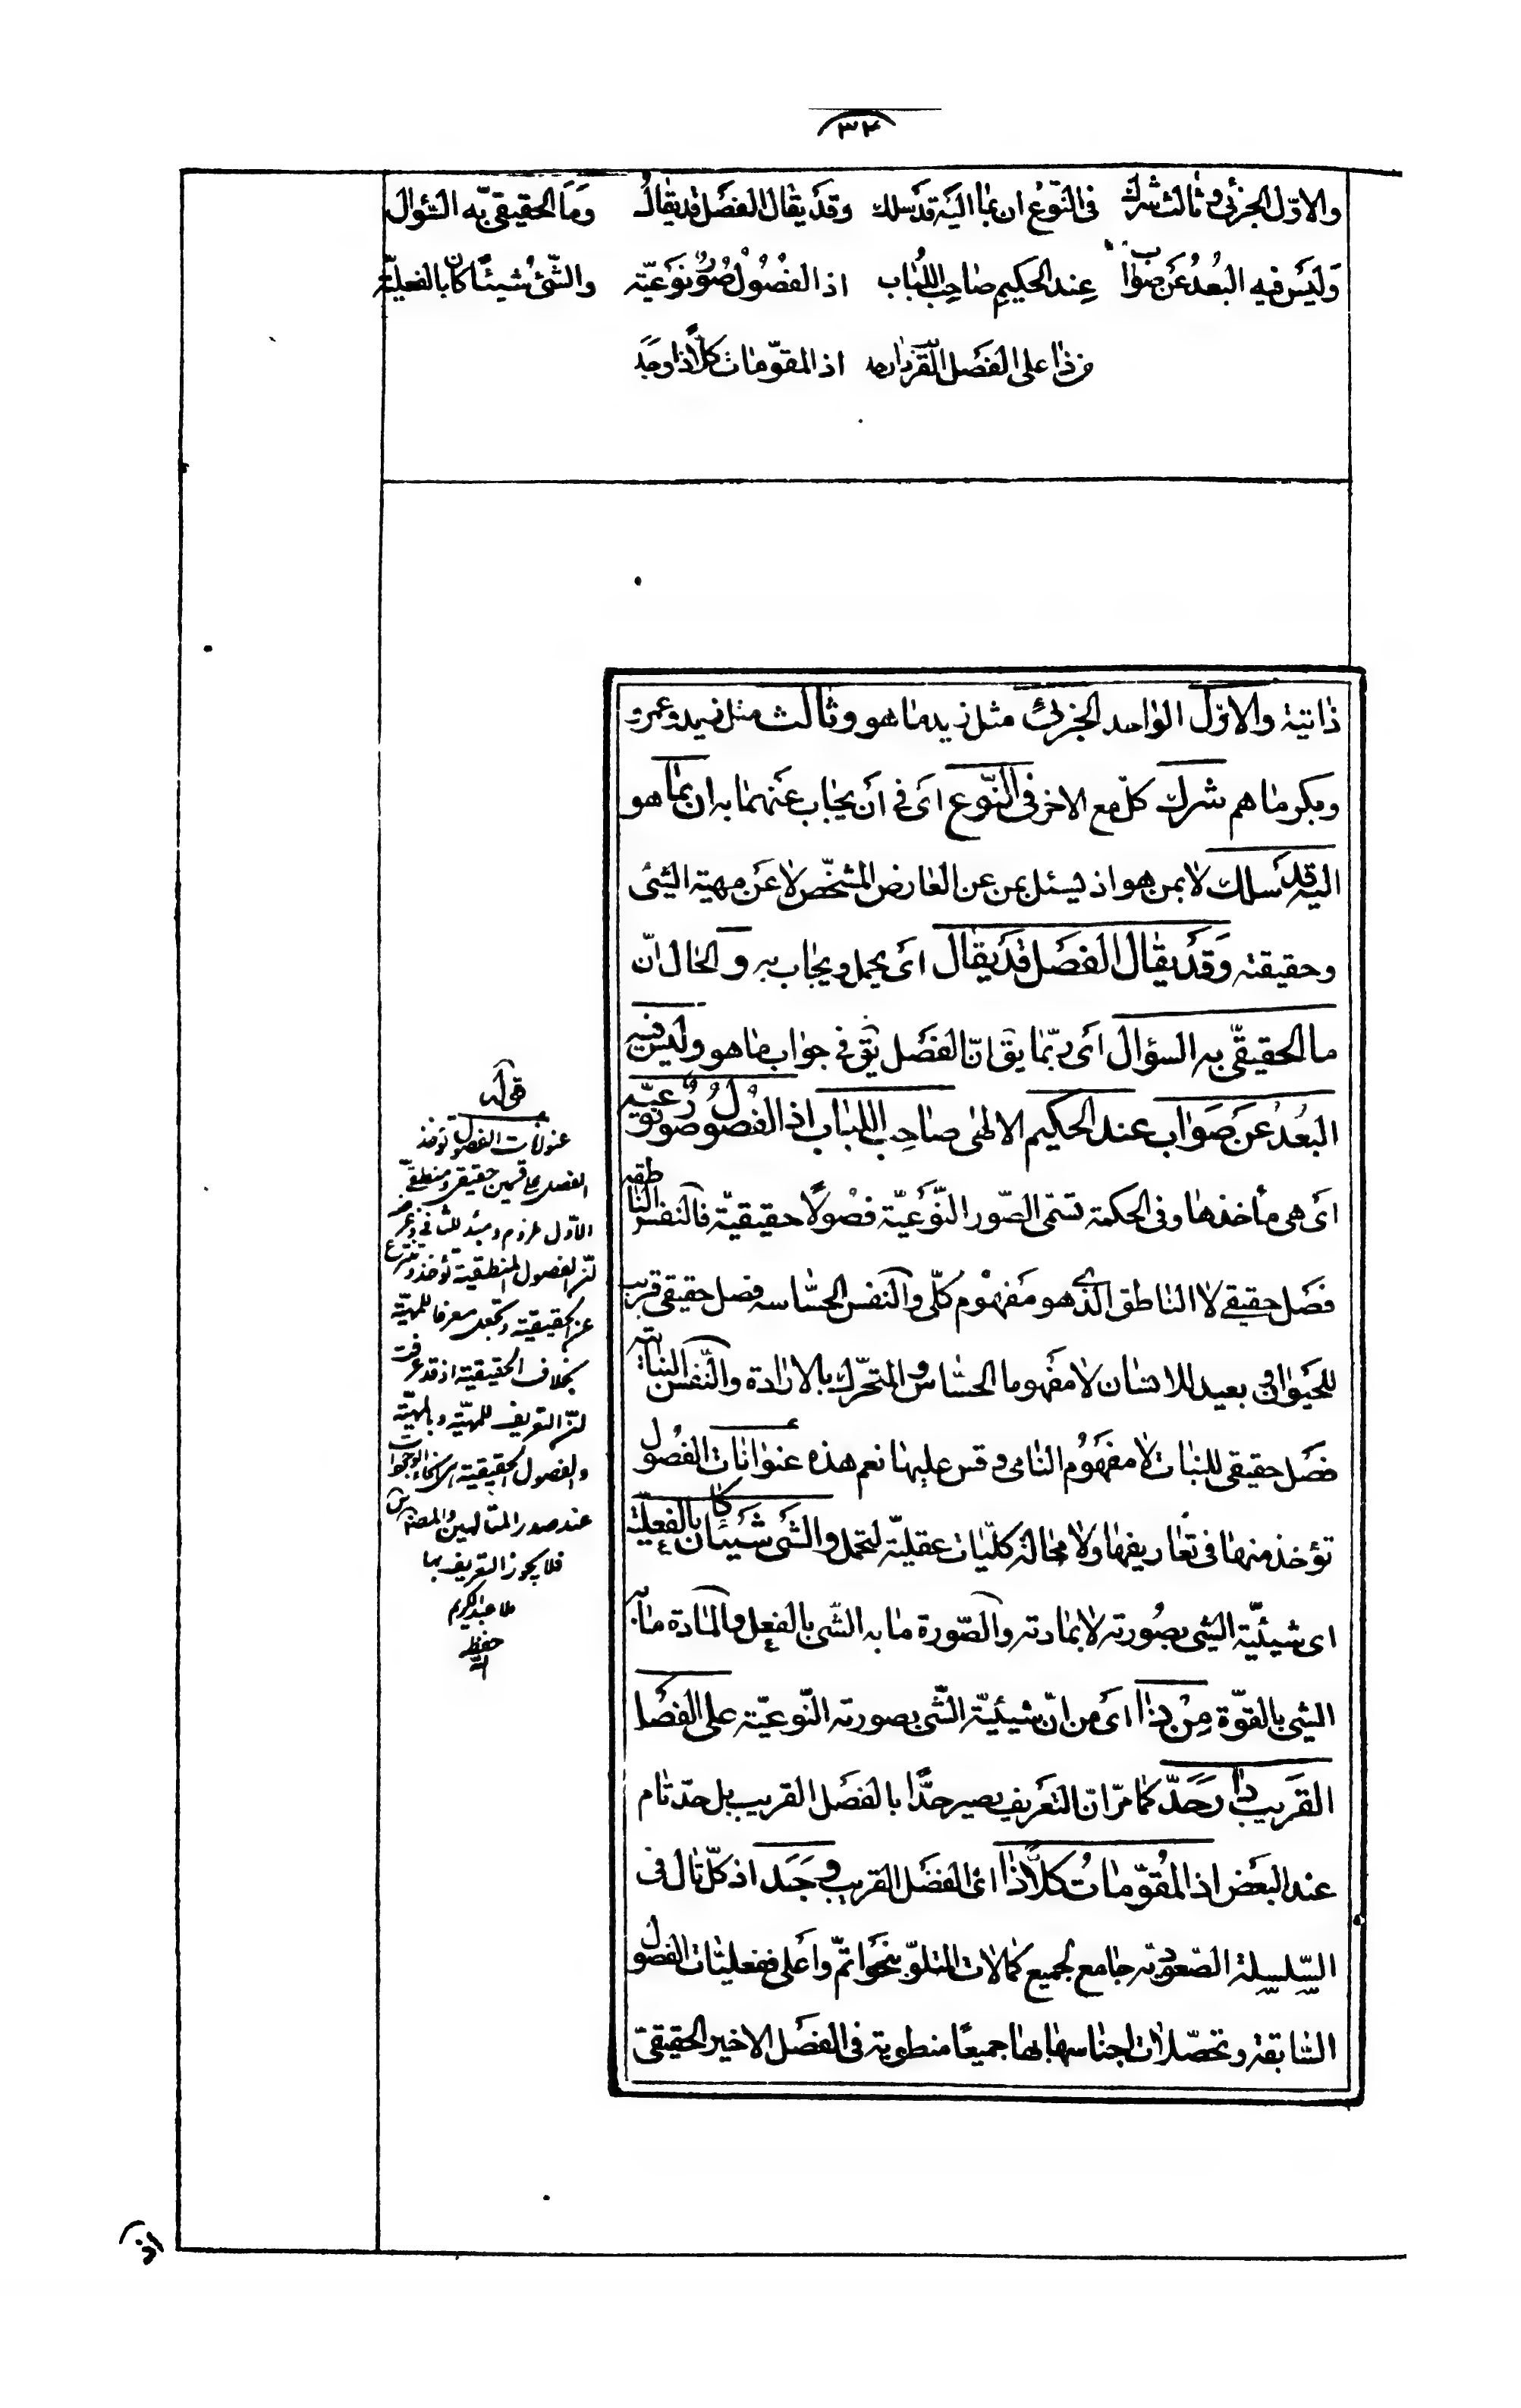 ٣٤
والاوّل الجزئى وثالث شرك فى النّوع ان بما اليه قد سلك وقد يقال الفصل قد يقال وما الحقيقىّ به السّؤال
وليس فيه البُعدُ عن صواب عند الحكيم صاحب اللّباب اذ الفصُولُ صُوَرٌ نوعيّة والشّئ شيئًا كانَ بالفعليّة
من ذا على الفصل القريب دار حد اذ المقوّمات كلّاً ذا وجد
ذاتية والاوّل الواحد الجزئى مثل زيد ما هو وثالث مثل زيد وعمرو
وبكر ما هم شرك كلّ مع الاخر فى النّوع اى فى ان يجاب عنهما به ان بما هو
اليه قد سلك لا بمن هو اذ يسئل بمن عن العارض المشخّص لا عن مهية الشئ
وحقيقته وقد يقال الفصل قد يقال اى يحمل ويجاب به و الحال انّ
ما الحقيقىّ به السؤال اى ربّما يق انّ الفصل يق فى جواب ما هو وليس فيه
البُعدُ عن صواب عند الحكيم الالهى صاحب اللباب اذ الفصُولُ صورٌ نوعيّة
اى هى مأخذها وفى الحكمة تسمّى الصّور النّوعيّة فصُولًا حقيقيّة فالنفس الناطقه
فصل حقيقى لا الناطق الذى هو مفهوم كلّى والنفس الحسّاسه فصل حقيقى قريب
للحيوان وبعيد للانسان لا مفهوما الحسّاس والمتحرّك بالارادة والنّفس النباتيّة
فصل حقيقى للنبات لا مفهوم النامى وقس عليها نعم هذه عنوانات الفصُول
تؤخذ منها فى تعاريفها ولا محالة كلّيات عقليّة لتحمل والشّئ شيئًا كان بالفعليّة
اى شيئيّة الشئ بصُورته لا بمادته والصّورة ما به الشّئ بالفعل والمادة ما به
الشئ بالقوّة مِنْ ذا اى من انّ شيئيّة الشّئ بصورته النّوعيّة على الفصل
القريب دار حَدّ كما مرّ انّ التعريف يصير حدًّا بالفصل القريب بل حدّ تام
عند البعض اذ المُقوّمات كلّاً ذا اى الفصل القريب وجَد اذ كلّ تال فى
السّلسلة الصّعوديّة جامع لجميع كمالات المتلوّ بنحو اتمّ واعلى ففعليّات الفصول
السّابقة وتحصّلات اجناسها بها جميعًا منطوية فى الفصل الاخير الحقيقىّ
قوله
عنوانات الفصول تؤخذ
الفصل على قسمين حقيقى ومنطقى
الاوّل ملزوم ومبدء للثانى
الفصول المنطقية تؤخذ وتنتزع
عن الحقيقية وتجعل معرفا للمهيّة
بخلاف الحقيقية اذ قد عرفت
التعريف للمهيّة وبالمهيّة
والفصول الحقيقية الوجودات
عند صدر المتألهين والمصنف
فلا يجوز التعريف بها
ملا عبد الكريم
حفظه
الله